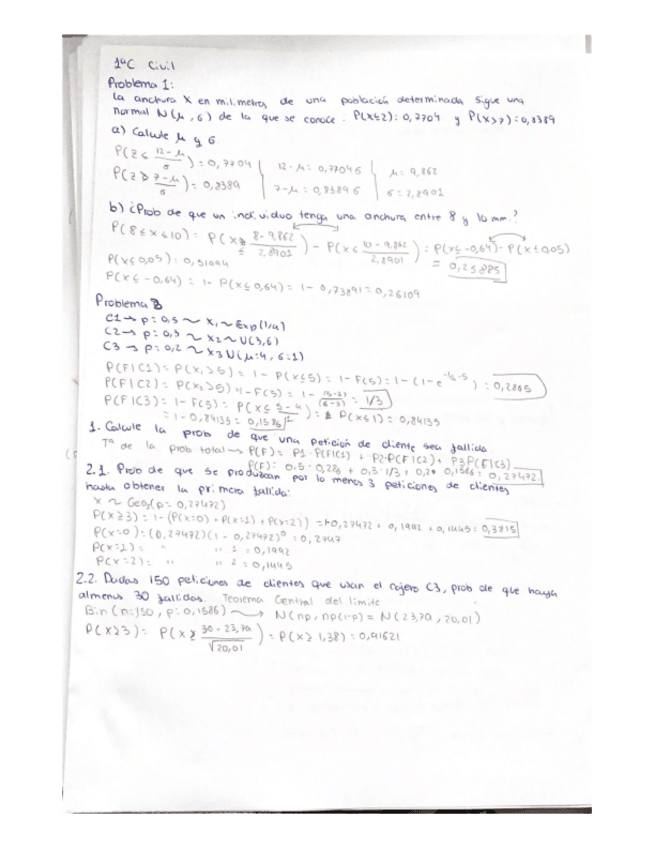 1ºC Civil
Problema 1:
La anchura X en milimetros de una población determinada sigue una
normal N(μ, σ) de la que se conoce: P(X≤2): 0,7704 y P(X>7): 0,8389
a) Calcule μ y σ
P(Z ≤ (12-μ)/σ) = 0,7704 | 12-μ = 0,7704σ | μ = 9,862
P(Z > (7-μ)/σ) = 0,8389 | 7-μ = 0,8389σ | σ = 2,8901
b) ¿Prob de que un individuo tenga una anchura entre 8 y 10 mm?
P(8≤x≤10) = P(x (8-9,862)/2,8901) - P(x≤ (10-9,862)/2,8901) = P(x≤-0,64) - P(x≤0,05)
= 0,25885
P(x≤0,05) = 0,51994
P(x≤-0,64) = 1- P(x≤0,64) = 1- 0,73891 = 0,26109
Problema 3
C1 → p=0,5 ~ X1 ~ Exp(1/4)
C2 → p=0,3 ~ X2 ~ U(3,6)
C3 → p=0,2 ~ X3 N(μ=4, σ=1)
P(F|C1) = P(X1>5) = 1- P(X≤5) = 1- F(5) = 1-(1-e^(-1/4·5)) = 0,2865
P(F|C2) = P(X2>5) = 1-F(5) = 1- (5-3)/(6-3) = 1/3
P(F|C3) = 1-F(5) = P(X≤ (5-4)/1) = P(X≤1) = 0,84135
= 1- 0,84135 = 0,1586
1. Calcule la prob de que una petición de cliente sea fallida
Tª de la prob total → P(F) = P1·P(F|C1) + P2·P(F|C2) + P3·P(F|C3)
P(F) = 0,5·0,286 + 0,3·1/3 + 0,2·0,1586 = 0,27472
2.1. Prob de que se produzcan por lo menos 3 peticiones de clientes
hasta obtener la primera fallida:
X ~ Geo(p=0,27472)
P(X≥3) = 1-(P(X=0) + P(X=1) + P(X=2)) = 1-0,27472 + 0,1992 + 0,1445 = 0,3815
P(X=0) = (0,27472)(1-0,27472)^0 = 0,2747
P(X=1) = " " 1 = 0,1992
P(X=2) = " " 2 = 0,1445
2.2. Dadas 150 peticiones de clientes que usan el cajero C3, prob de que haya
almenos 30 fallidas. Teorema Central del límite
Bin(n=150, p=0,1586) → N(np, np(1-p)) = N(23,79, 20,01)
P(X≥3) = P(X ≥ (30-23,79)/√20,01) = P(X≥1,38) = 0,91621